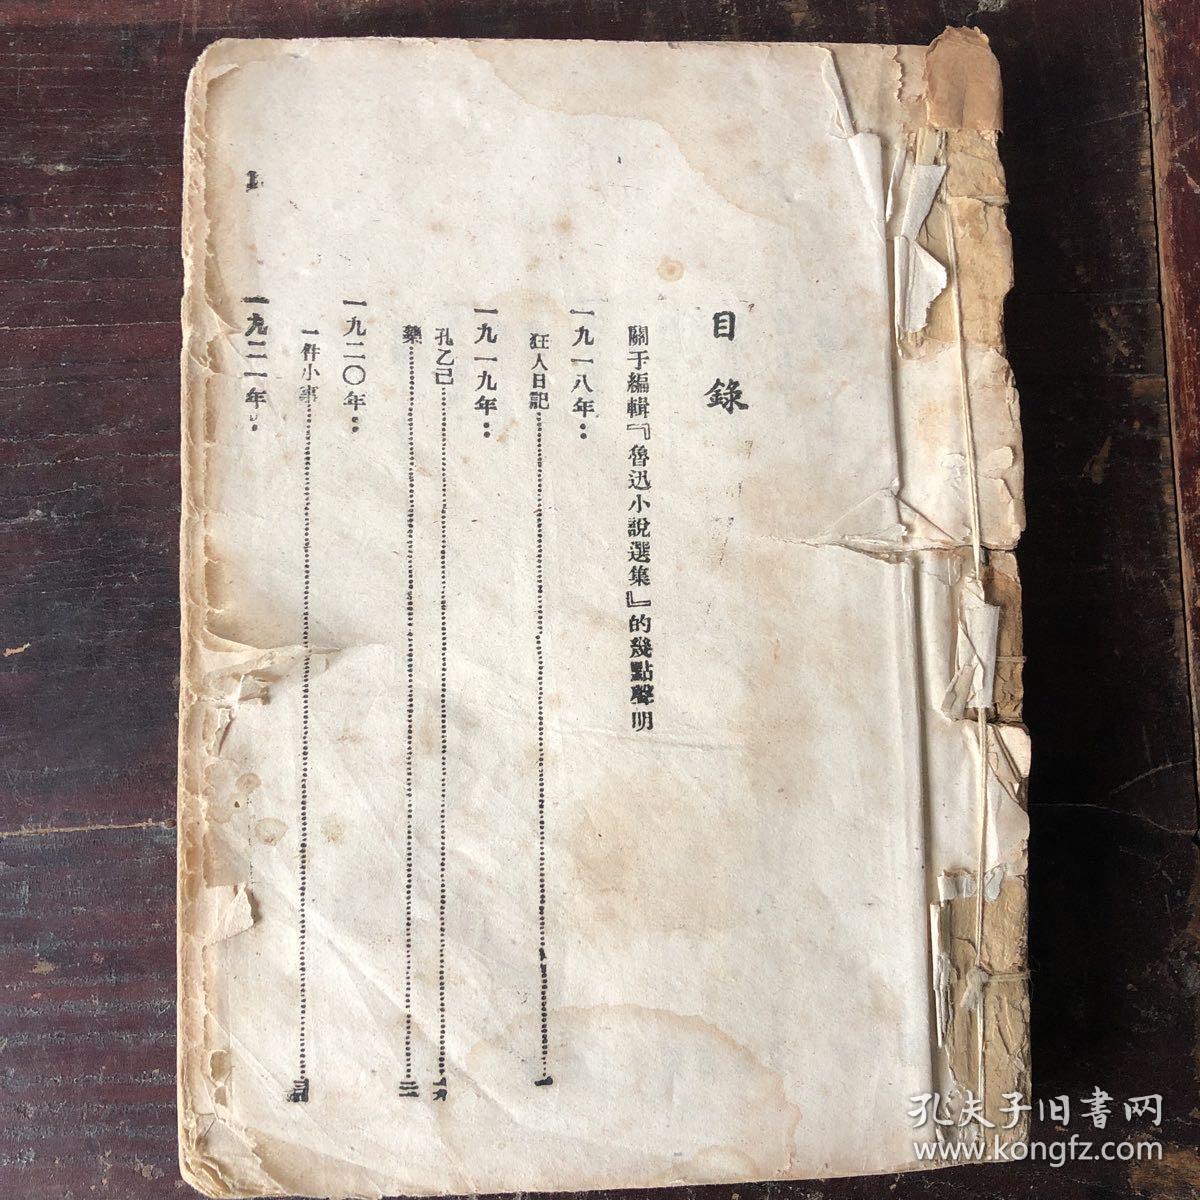 目錄
關于編輯『魯迅小說選集』的幾點聲明
一九一八年：
狂人日記……一
一九一九年：
孔乙己……一六
藥……
一九二〇年：
一件小事……
一九二一年：
孔夫子旧書网
www.kongfz.com